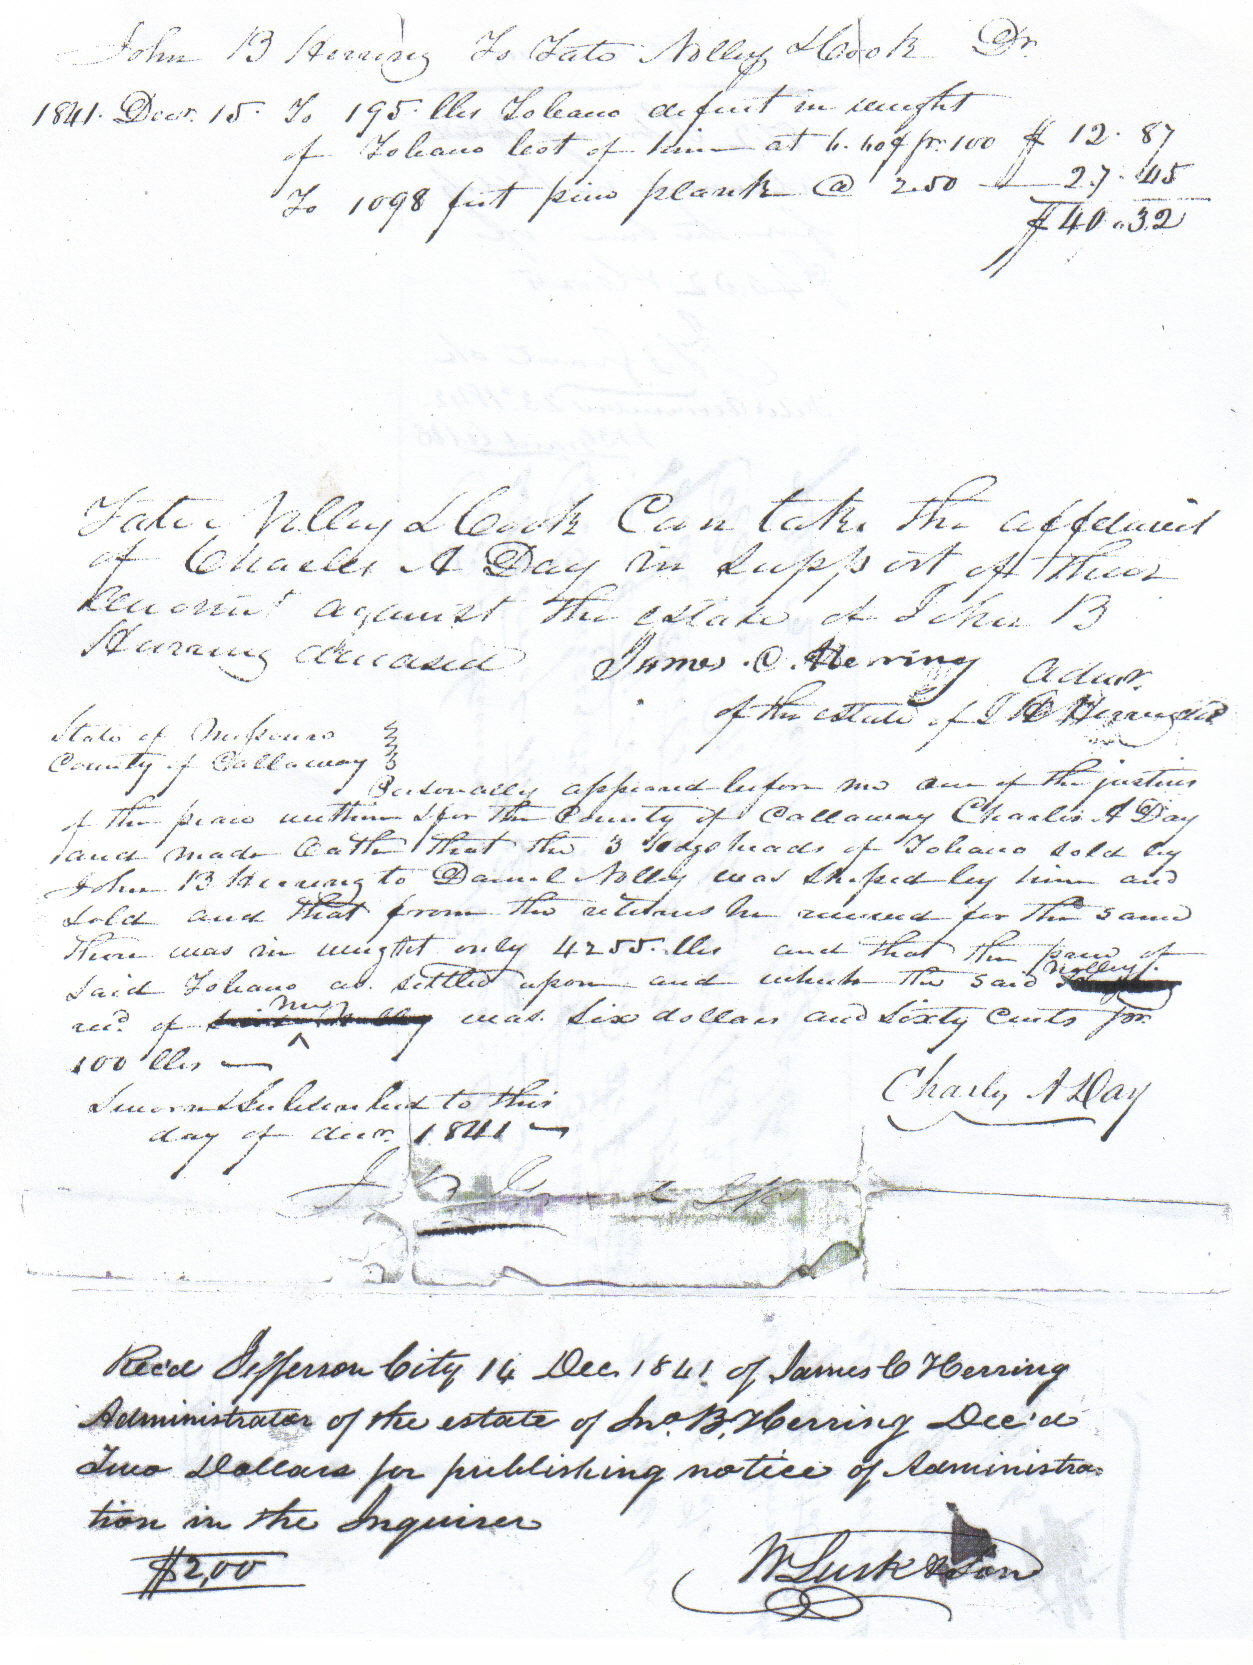 John B Herring To Tate Nolley & Cook Dr.
1841. Decr. 15. To 195. lbs Tobacco deficit in weight
of Tobacco bot of him at 6.60¢ pr. 100 $ 12. 87
To 1098 feet pine plank @ 2.50 — 27. 45
$ 40. 32
Tate Nolley & Cook Can take the affidavit
of Charles A Day in support of their
account against the estate of John B
Herring deceased James . C . Herring admr.
of the estate of J B Herring decd
State of Missouri
County of Callaway
Personally appeared before me one of the justices
of the peace within & for the County of Callaway Charles A Day
and made Oath that the 3 hogsheads of Tobacco sold by
John B Herring to Daniel Nolley was shiped by him and
sold and that from the returns he received for the same
there was in weight only 4255. lbs and that the price of
said Tobacco as settled upon and which the said Nolley
recd. of me was six dollars and sixty Cents pr.
100 lbs —
Sworn & Subscribed to this
day of decr. 1841 —
Charles A Day
J B
Rec'd Jefferson City 14 Dec. 1841 of James C Herring
Administrator of the estate of Jno. B. Herring Dec'd
Two Dollars for publishing notice of Administra-
tion in the Inquirer
$2,00
W Lusk & Son